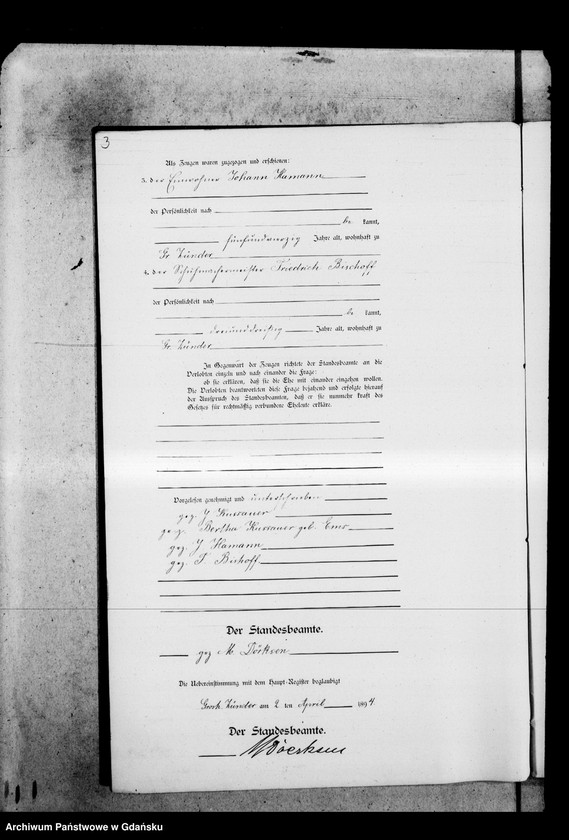 3
Als Zeugen waren zugezogen und erschienen:
3. der Einwohner Johann Hamann
der Persönlichkeit nach
be kannt,
fünfundvierzig Jahre alt, wohnhaft zu
Gr. Zünder
4. der Schuhmachermeister Friedrich Bischoff
der Persönlichkeit nach
be kannt,
dreiunddreißig Jahre alt, wohnhaft zu
Gr. Zünder
In Gegenwart der Zeugen richtete der Standesbeamte an die
Verlobten einzeln und nach einander die Frage:
ob sie erklären, daß sie die Ehe mit einander eingehen wollen.
Die Verlobten beantworteten diese Frage bejahend und erfolgte hierauf
der Ausspruch des Standesbeamten, daß er sie nunmehr kraft des
Gesetzes für rechtmäßig verbundene Eheleute erkläre.
Vorgelesen genehmigt und unterschrieben
gez. J Kursauer
gez. Bertha Kursauer geb.
gez. J Hamann
gez. F. Bischoff
Der Standesbeamte.
gez M. Dörksen
Die Uebereinstimmung mit dem Haupt-Register beglaubigt
Gross Zünder am 2 ten April 1894.
Der Standesbeamte.
MDoerksen
Archiwum Państwowe w Gdańsku